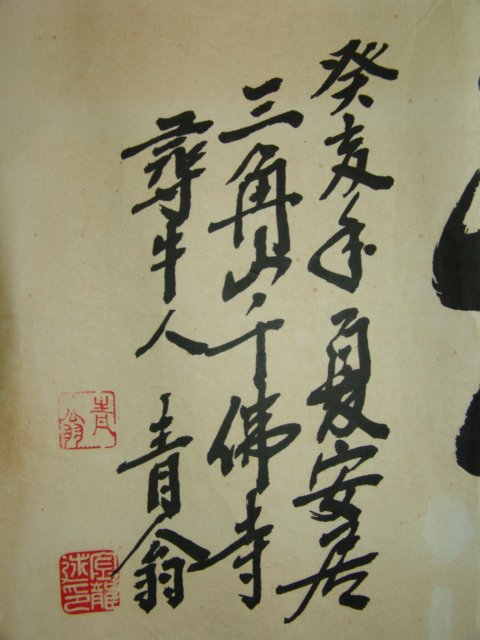 癸亥年夏安居
三角山千佛寺
尋牛人 青翁
青翁